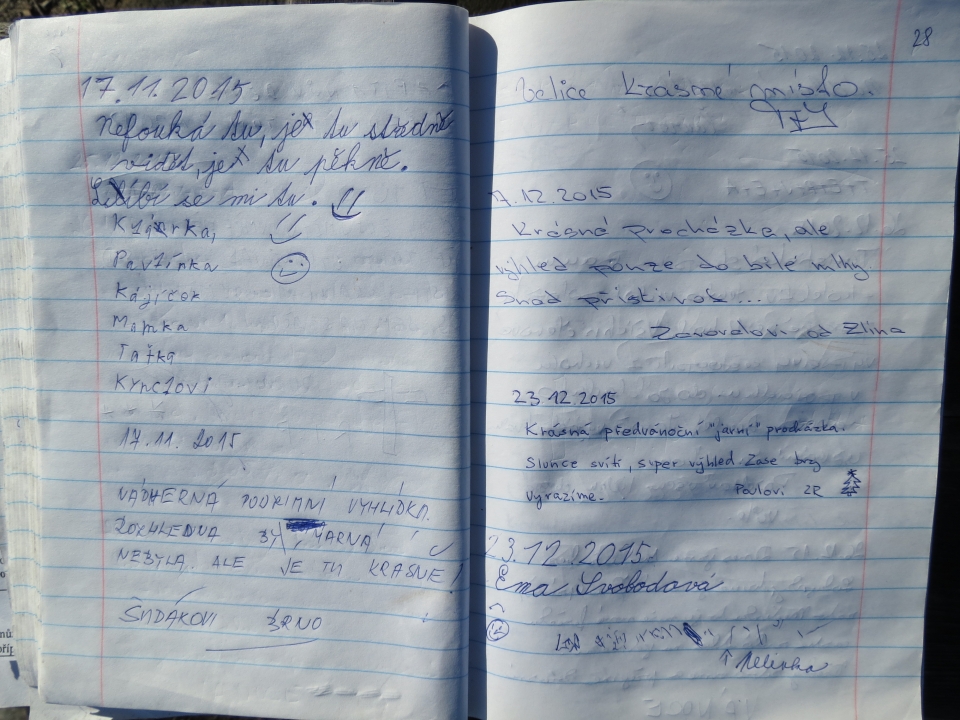 17.11.2015
Nefouká tu, je tu středně
vidět, je tu pěkně.
Líbí se mi tu.
Klárka,
Pavlínka
Kájíček
Mamka
Taťka
Kynclovi
17.11.2015
NÁDHERNÁ PODZIMNÍ VYHLÍDKA.
ROZHLEDNA BY MARNÁ
NEBYLA, ALE JE TU KRÁSNĚ!
ŠUDÁKOVI BRNO
28
Velice Krásné místo.
7.12.2015
Krásná procházka, ale
výhled pouze do bílé mlhy.
Snad příští rok...
Zavadilovi od Zlína
23.12.2015
Krásná předvánoční "jarní" procházka.
Slunce svítí, super výhled. Zase brzy
vyrazíme. Pavlovi ZR
23.12.2015
Ema Svobodová
↑ Nelinka